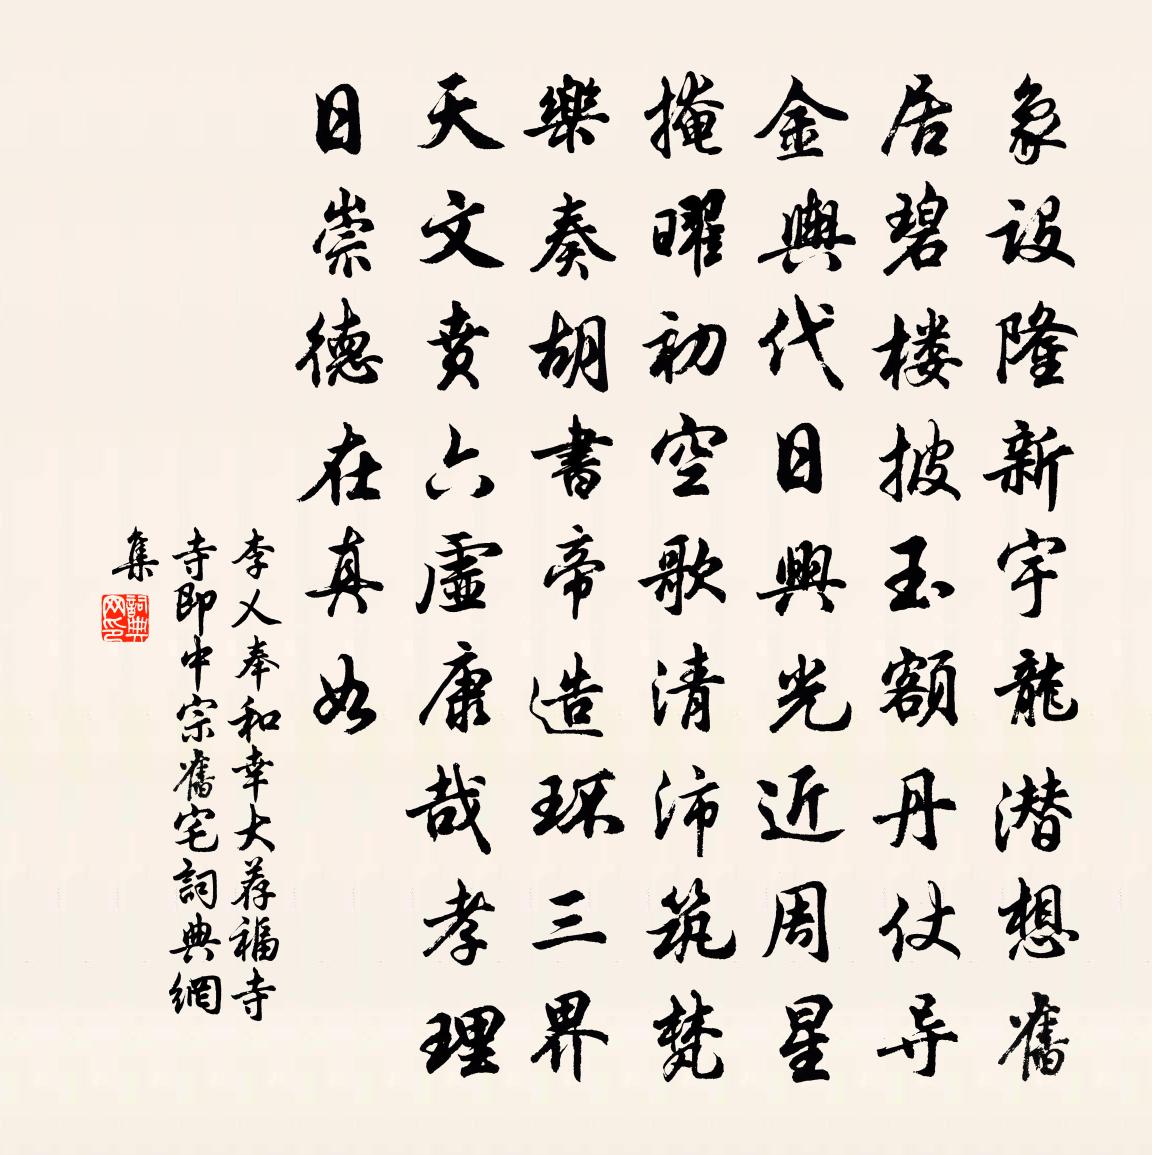 象設隆新宇龍潜想舊
居碧楼披玉額丹仗导
金輿代日興光近周星
掩曜初空歌清沛筑梵
樂奏胡書帝造环三界
天文賁六虛康哉孝理
日崇德在真如
李乂奉和幸大荐福寺
寺即中宗舊宅詞典網
集
詞典网印